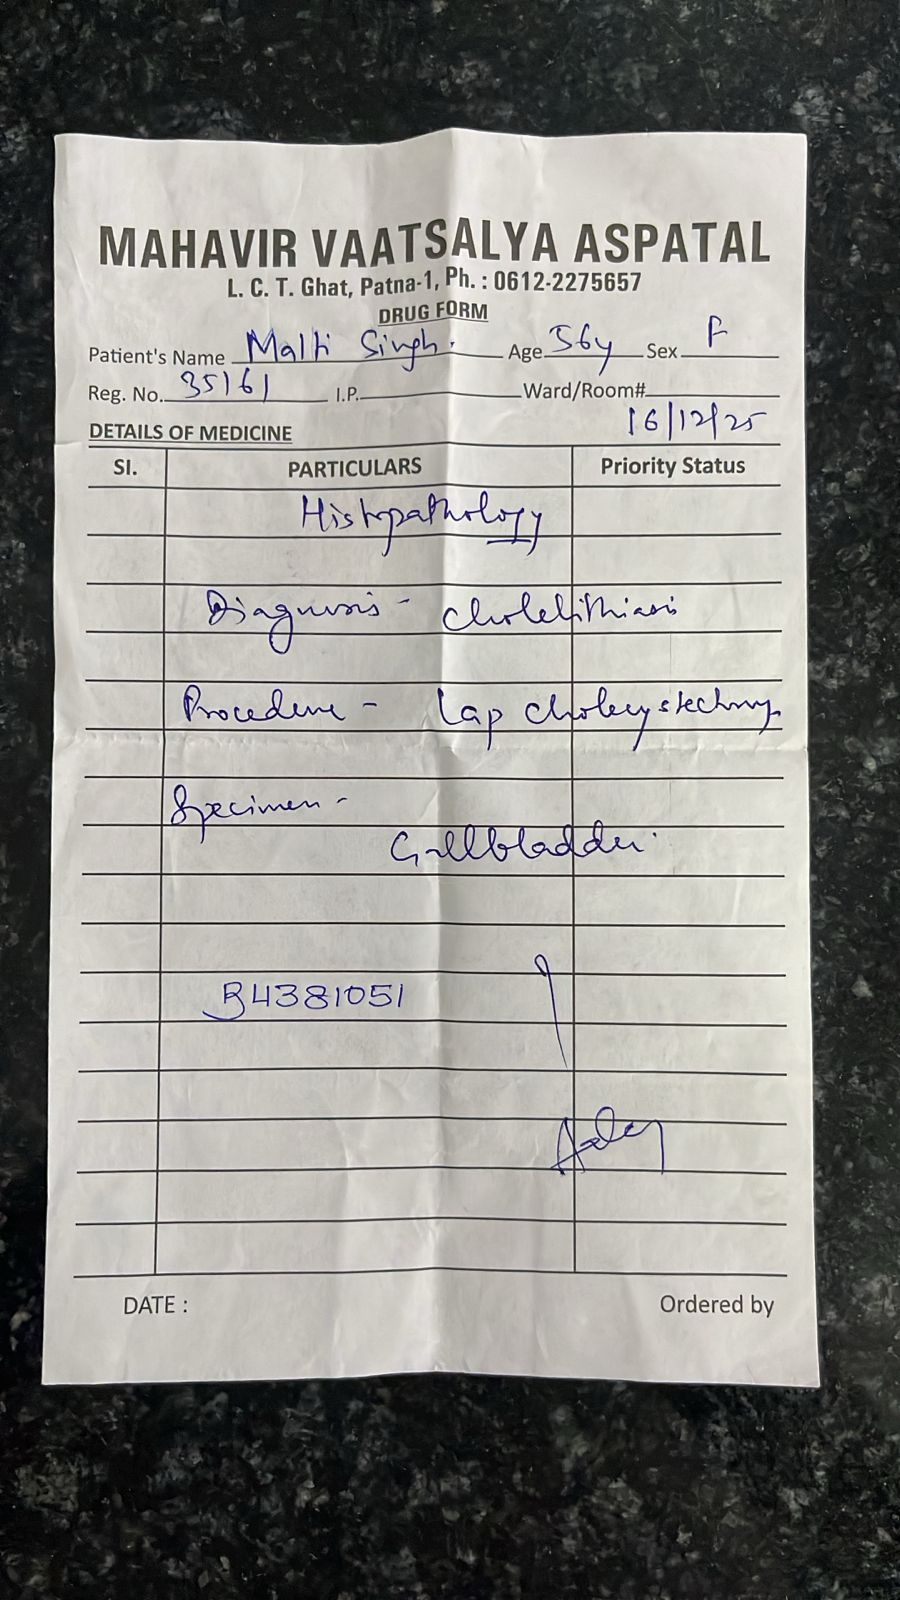 MAHAVIR VAATSALYA ASPATAL
L. C. T. Ghat, Patna-1, Ph. : 0612-2275657
DRUG FORM
Patient's Name Malti Singh. Age 56y Sex F
Reg. No. 35161 I.P. Ward/Room#
16/12/25
DETAILS OF MEDICINE
SI. PARTICULARS Priority Status
Histopathology
Diagnosis - Cholelithiasis
Procedure - Lap cholecystectomy
Specimen -
Gallbladder.
B4381051
DATE : Ordered by